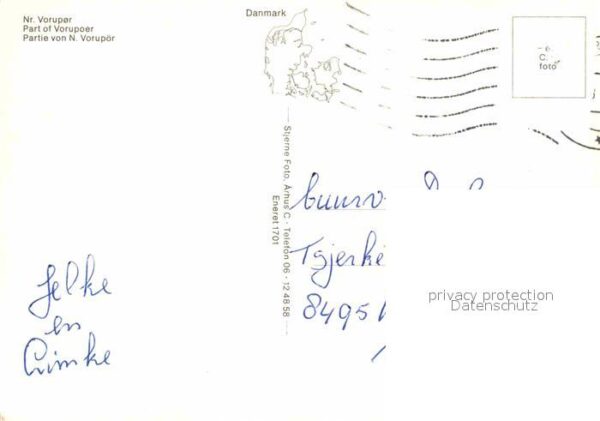 Nr. Vorupør
Part of Vorupoer
Partie von N. Vorupör
Danmark
- e.
C.
foto
Stjerne Foto, Århus C · Telefon 06 - 12 48 58
Eneret 1701
Jelke
en
Tjerke
8495
privacy protection
Datenschutz